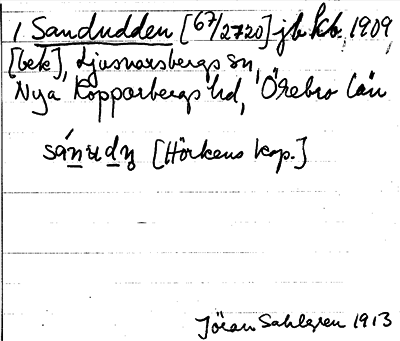 1 Sandudden [67/2720] jb. kb. 1909
[bek], Ljusnarsbergs sn,
Nya Kopparbergs hd, Örebro län
[Hörkens kap.]
Jöran Sahlgren 1913